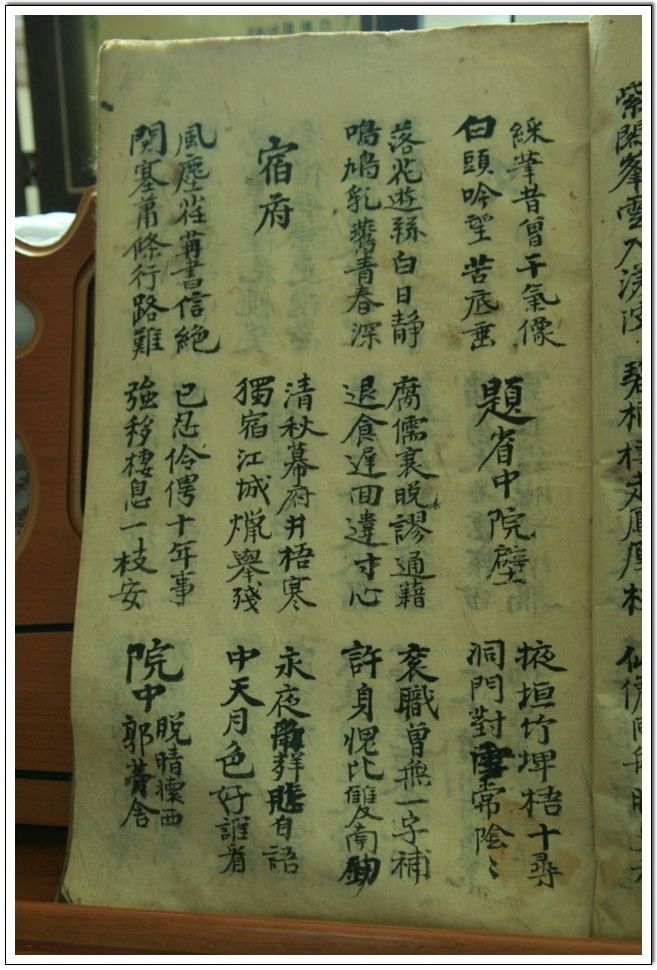 紫閣峯雲入渼陂
仙侶同舟晚
綵筆昔曾干氣像
白頭吟望苦底垂
題省中院壁
掖垣竹埤梧十尋
洞門對常陰〻
落花遊絲白日静
鳴鳩乳鷰青春深
腐儒衰脱謬通藉
退食遅回違寸心
袞職曾無一字補
許身愧比雙南
宿府
清秋幕府井梧寒
獨宿江城爉舉殘
永夜悲自語
中天月色好誰看
風塵荏苒書信絶
関塞蕭條行路難
已忍伶俜十年事
強移棲息一枝安
院中
脱晴懷西
郭茅舍